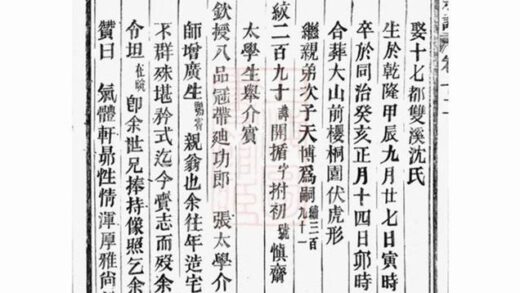 娶十七都雙溪沈氏
生於乾隆甲辰九月廿七日寅時
卒於同治癸亥正月十四日卯時
合葬大山前櫻桐園伏虎形
繼親弟次子天博爲嗣續三百九十一
紋二百九十諱開循字拊初號慎齋
太學生舉介賓
欽授八品冠帶廸功郎 張太學介
師增廣生 親翁也余往年造宅
不群殊堪矜式迄今賫志而歿余
令坦在皖卽余世兄捧持像照乞余
贊曰 氣體軒昂性情渾厚雅尚